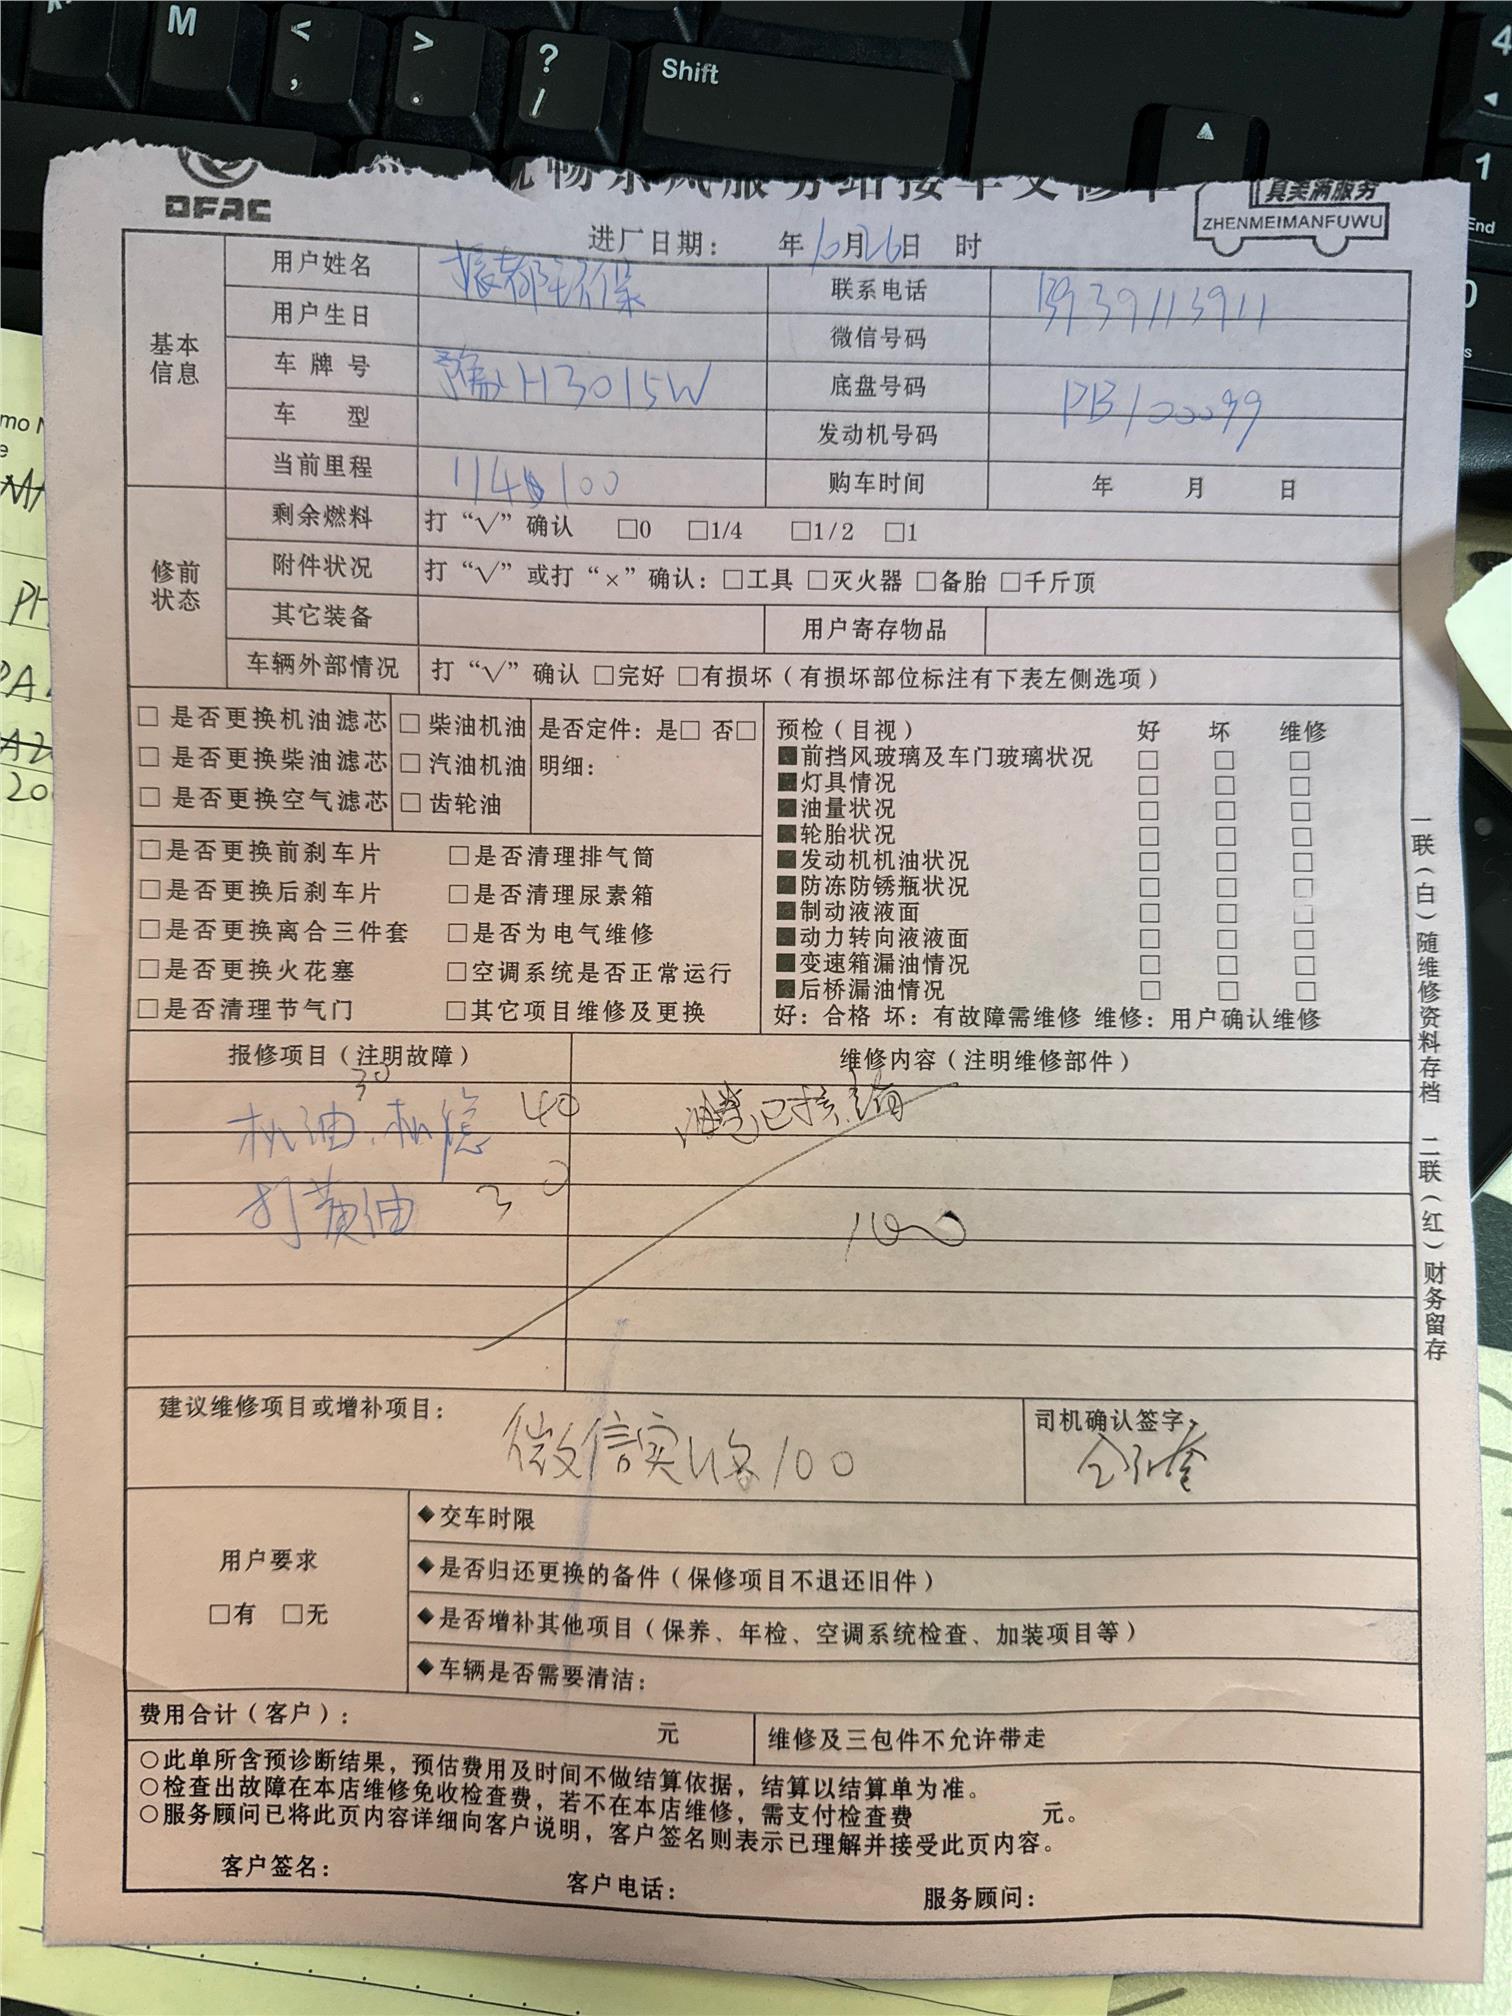 M
<
,
>
.
?
/
Shift
4
1
End
0
DFAC
畅东风服务站接车交修单
真美满服务
ZHENMEIMANFUWU
进厂日期： 年10月26日 时
基本信息
用户姓名 振都环保 联系电话 13939113911
用户生日 微信号码
车牌号 豫H3015W 底盘号码 PB100099
车 型 发动机号码
当前里程 114100 购车时间 年 月 日
修前状态
剩余燃料 打“√”确认 □0 □1/4 □1/2 □1
附件状况 打“√”或打“×”确认：□工具 □灭火器 □备胎 □千斤顶
其它装备 用户寄存物品
车辆外部情况 打“√”确认 □完好 □有损坏（有损坏部位标注有下表左侧选项）
□ 是否更换机油滤芯 □ 柴油机油 是否定件：是□ 否□
□ 是否更换柴油滤芯 □ 汽油机油 明细：
□ 是否更换空气滤芯 □ 齿轮油
□是否更换前刹车片 □是否清理排气筒
□是否更换后刹车片 □是否清理尿素箱
□是否更换离合三件套 □是否为电气维修
□是否更换火花塞 □空调系统是否正常运行
□是否清理节气门 □其它项目维修及更换
预检（目视） 好 坏 维修
■前挡风玻璃及车门玻璃状况 □ □ □
■灯具情况 □ □ □
■油量状况 □ □ □
■轮胎状况 □ □ □
■发动机机油状况 □ □ □
■防冻防锈瓶状况 □ □ □
■制动液液面 □ □ □
■动力转向液液面 □ □ □
■变速箱漏油情况 □ □ □
■后桥漏油情况 □ □ □
好：合格 坏：有故障需维修 维修：用户确认维修
一联（白）随维修资料存档 二联（红）财务留存
报修项目（注明故障） 维修内容（注明维修部件）
30
机油、机滤 40
打黄油 30
100
建议维修项目或增补项目：
微信实收100
司机确认签字
用户要求
□有 □无
◆交车时限
◆是否归还更换的备件（保修项目不退还旧件）
◆是否增补其他项目（保养、年检、空调系统检查、加装项目等）
◆车辆是否需要清洁：
费用合计（客户）： 元 维修及三包件不允许带走
○此单所含预诊断结果，预估费用及时间不做结算依据，结算以结算单为准。
○检查出故障在本店维修免收检查费，若不在本店维修，需支付检查费 元。
○服务顾问已将此页内容详细向客户说明，客户签名则表示已理解并接受此页内容。
客户签名： 客户电话： 服务顾问：